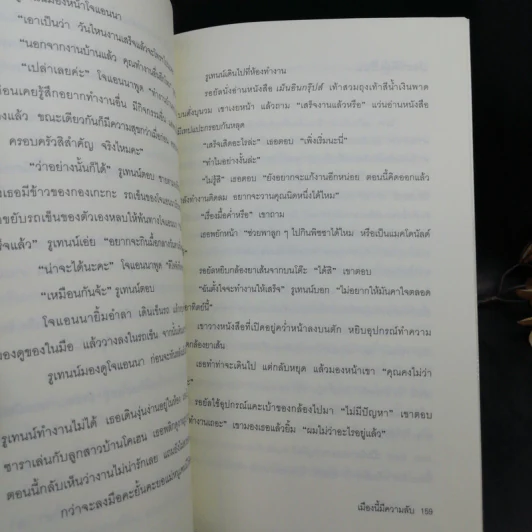 มองหน้าโจแอนนา
"เอาเป็นว่า วันไหนงานเสร็จแล้วจะ
"นอกจากงานบ้านแล้ว คุณทำงานอื่น
"เปล่าเลยค่ะ" โจแอนนาพูด
ก่อนเคยรู้สึกอยากทำงานอื่น มีกิจกรรม
แล้ว ขณะเดียวกันก็มีความสุขกว่าเมื่อก่อน
ครอบครัวสิสำคัญ จริงไหมคะ"
"ว่าอย่างนั้นก็ได้" รูเทนน์ตอบ
เธอมีข้าวของกองเกะกะ รถเข็นของโจแอนนา
ขยับรถเข็นของตัวเองหลบให้พ้นทางโจแอนนา
แล้ว" รูเทนน์เอ่ย "อยากจะกินมื้อกลางวัน
"น่าจะได้นะคะ" โจแอนนาพูด
"เหมือนกันจ้ะ" รูเทนน์ตอบ
โจแอนนายิ้มอำลา เดินเข็นรถ
ของดูของในมือ แล้ววางลงในรถเข็น จากนั้น
รูเทนน์มองดูโจแอนนา ก่อนจะหัน
รูเทนน์ทำงานไม่ได้ เธอเดินงุ่นง่านอยู่ในห้อง
ซาราเล่นกับลูกสาวบ้านโคเฮน
ตอนนี้กลับเห็นว่างานไม่น่ารักเลย
กว่าจะลงมือคะยั้นคะยอ
รูเทนน์เดินไปที่ห้องทำงาน
รอยัลนั่งอ่านหนังสือ เม้นอินกรุ๊ปส์ เท้าสวมถุงเท้าสีน้ำเงินพาด
บนตั่งนุนวม เขาเงยหน้า แล้วถาม "เสร็จงานแล้วหรือ" แว่นอ่านหนังสือ
มีเทปแปะกรอบกันหลุด
"เสร็จเสียอะไรล่ะ" เธอตอบ "เพิ่งเริ่มนะนี่"
"ทำไมอย่างงั้นล่ะ"
"ไม่รู้สิ" เธอตอบ "ยังอยากจะแก้งานอีกหน่อย ตอนนี้คิดออกแล้ว
กำลังทำงานติดลม อยากจะวานคุณนิดหนึ่งได้ไหม"
"เรื่องมื้อค่ำหรือ" เขาถาม
เธอพยักหน้า "ช่วยพาลูก ๆ ไปกินพิซซาได้ไหม หรือเป็นแมคโดนัลด์
รอยัลหยิบกล้องยาเส้นจากบนโต๊ะ "ได้สิ" เขาตอบ
"ฉันตั้งใจจะทำงานให้เสร็จ" รูเทนน์บอก "ไม่อยากให้มันคาใจตลอด
อาทิตย์นี้"
เขาวางหนังสือที่เปิดอยู่คว่ำหน้าลงบนตัก หยิบอุปกรณ์ทำความ
กล้องยาเส้น
เธอทำท่าจะเดินไป แต่กลับหยุด แล้วมองหน้าเขา "คุณคงไม่ว่า
รอยัลใช้อุปกรณ์แคะเบ้าของกล้องไปมา "ไม่มีปัญหา" เขาตอบ
ทำงานเถอะ" เขามองเธอแล้วยิ้ม "ผมไม่ว่าอะไรอยู่แล้ว"
เมืองนี้มีความลับ 159